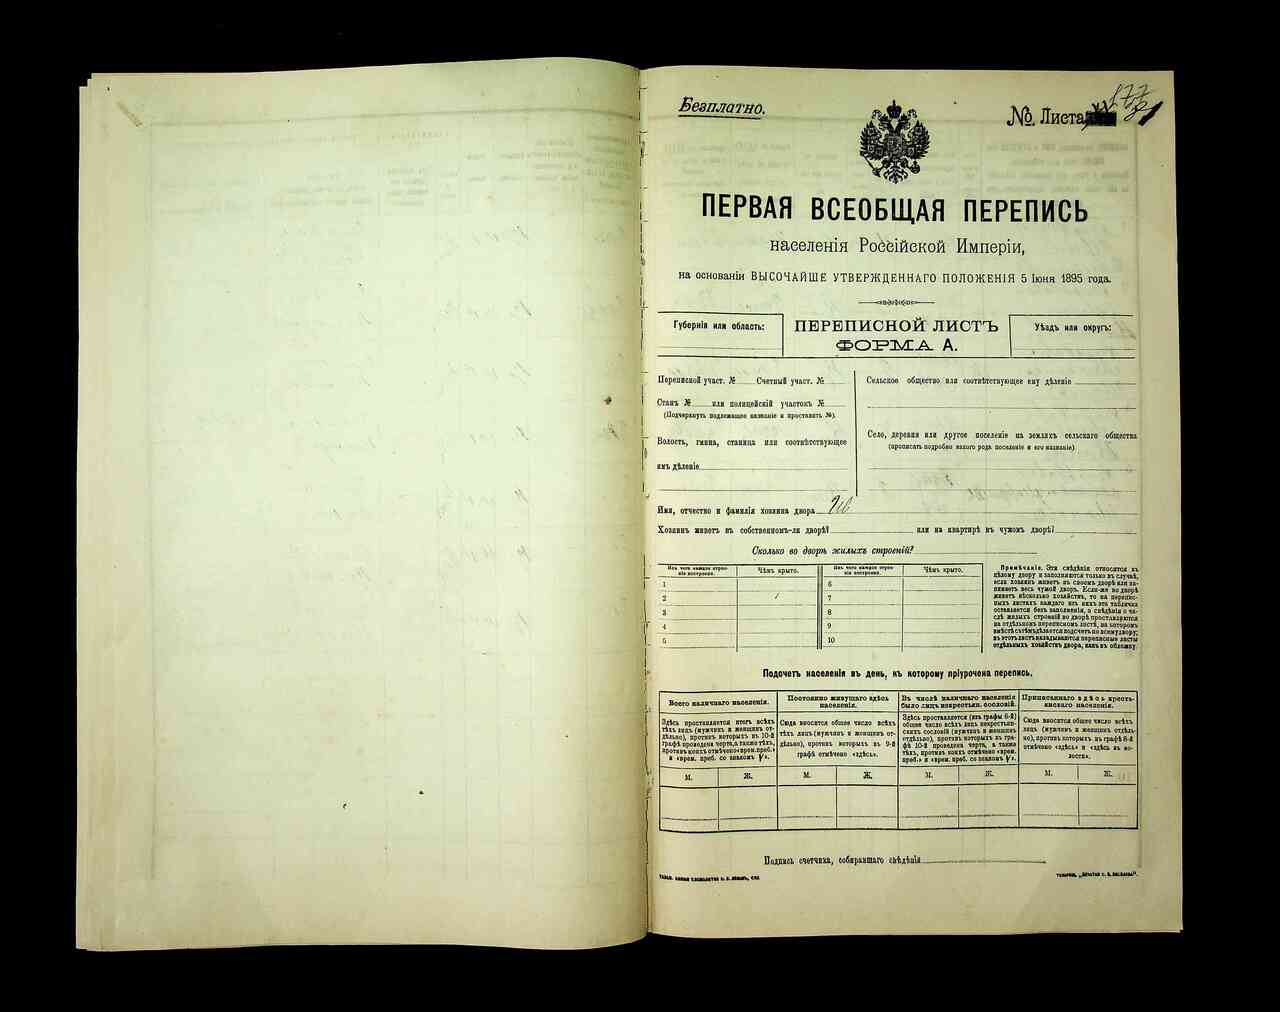 Безплатно.
№ Листа
177
ПЕРВАЯ ВСЕОБЩАЯ ПЕРЕПИСЬ
населенія Россійской Имперіи,
на основаніи ВЫСОЧАЙШЕ УТВЕРЖДЕННАГО ПОЛОЖЕНІЯ 5 Іюня 1895 года.
Губернія или область:
ПЕРЕПИСНОЙ ЛИСТЪ
ФОРМА А.
Уѣздъ или округъ:
Переписной участ. № Счетный участ. №
Станъ № или полицейскій участокъ №
(Подчеркнуть подлежащее названіе и проставить №).
Волость, гмина, станица или соотвѣтствующее
имъ дѣленіе
Сельское общество или соотвѣтствующее ему дѣленіе
Село, деревня или другое поселеніе на земляхъ сельскаго общества
(прописать подробно какого рода поселеніе и его названіе)
Имя, отчество и фамилія хозяина двора
Хозяинъ живетъ въ собственномъ-ли дворѣ? или на квартирѣ въ чужомъ дворѣ?
Сколько во дворѣ жилыхъ строеній?
Изъ чего каждое строе-
ніе построено.
Чѣмъ крыто.
1
2
3
4
5
Изъ чего каждое строе-
ніе построено.
Чѣмъ крыто.
6
7
8
9
10
Примѣчаніе. Эти свѣдѣнія относятся къ
цѣлому двору и заполняются только въ случаѣ,
если хозяинъ живетъ въ своемъ дворѣ или за-
нимаетъ весь чужой дворъ. Если-же во дворѣ
живетъ нѣсколько хозяйствъ, то на перепис-
ныхъ листахъ каждаго изъ нихъ эта табличка
оставляется безъ заполненія, а свѣдѣнія о чи-
слѣ жилыхъ строеній во дворѣ проставляются
на отдѣльномъ переписномъ листѣ, на которомъ
вмѣстѣ съ тѣмъ дѣлается подсчетъ по всему двору;
въ этотъ листъ вкладываются переписные листы
отдѣльныхъ хозяйствъ двора, какъ въ обложку.
Подсчетъ населенія въ день, къ которому пріурочена перепись.
Всего наличнаго населенія.
Здѣсь проставляется итогъ всѣхъ
тѣхъ лицъ (мужчинъ и женщинъ от-
дѣльно), противъ которыхъ въ 10-й
графѣ проведена черта, а также тѣхъ,
противъ коихъ отмѣчено «врем. преб.»
и «врем. преб. со знакомъ V».
М. Ж.
Постоянно живущаго здѣсь
населенія.
Сюда вносится общее число всѣхъ
тѣхъ лицъ (мужчинъ и женщинъ от-
дѣльно), противъ которыхъ въ 9-й
графѣ отмѣчено «здѣсь».
М. Ж.
Въ числѣ наличнаго населенія
было лицъ некрестьян. сословій.
Здѣсь проставляется (изъ графы 6-й)
общее число всѣхъ лицъ некрестьян-
скихъ сословій (мужчинъ и женщинъ
отдѣльно), противъ которыхъ въ гра-
фѣ 10-й проведена черта, а также
тѣхъ, противъ коихъ отмѣчено «врем.
преб.» и «врем. преб. со знакомъ V».
М. Ж.
Приписаннаго здѣсь кресть-
янскаго населенія.
Сюда вносится общее число всѣхъ
лицъ (мужчинъ и женщинъ отдѣль-
но), противъ которыхъ въ графѣ 8-й
отмѣчено «здѣсь» и «здѣсь въ во-
лости».
М. Ж.
Подпись счетчика, собиравшаго свѣдѣнія